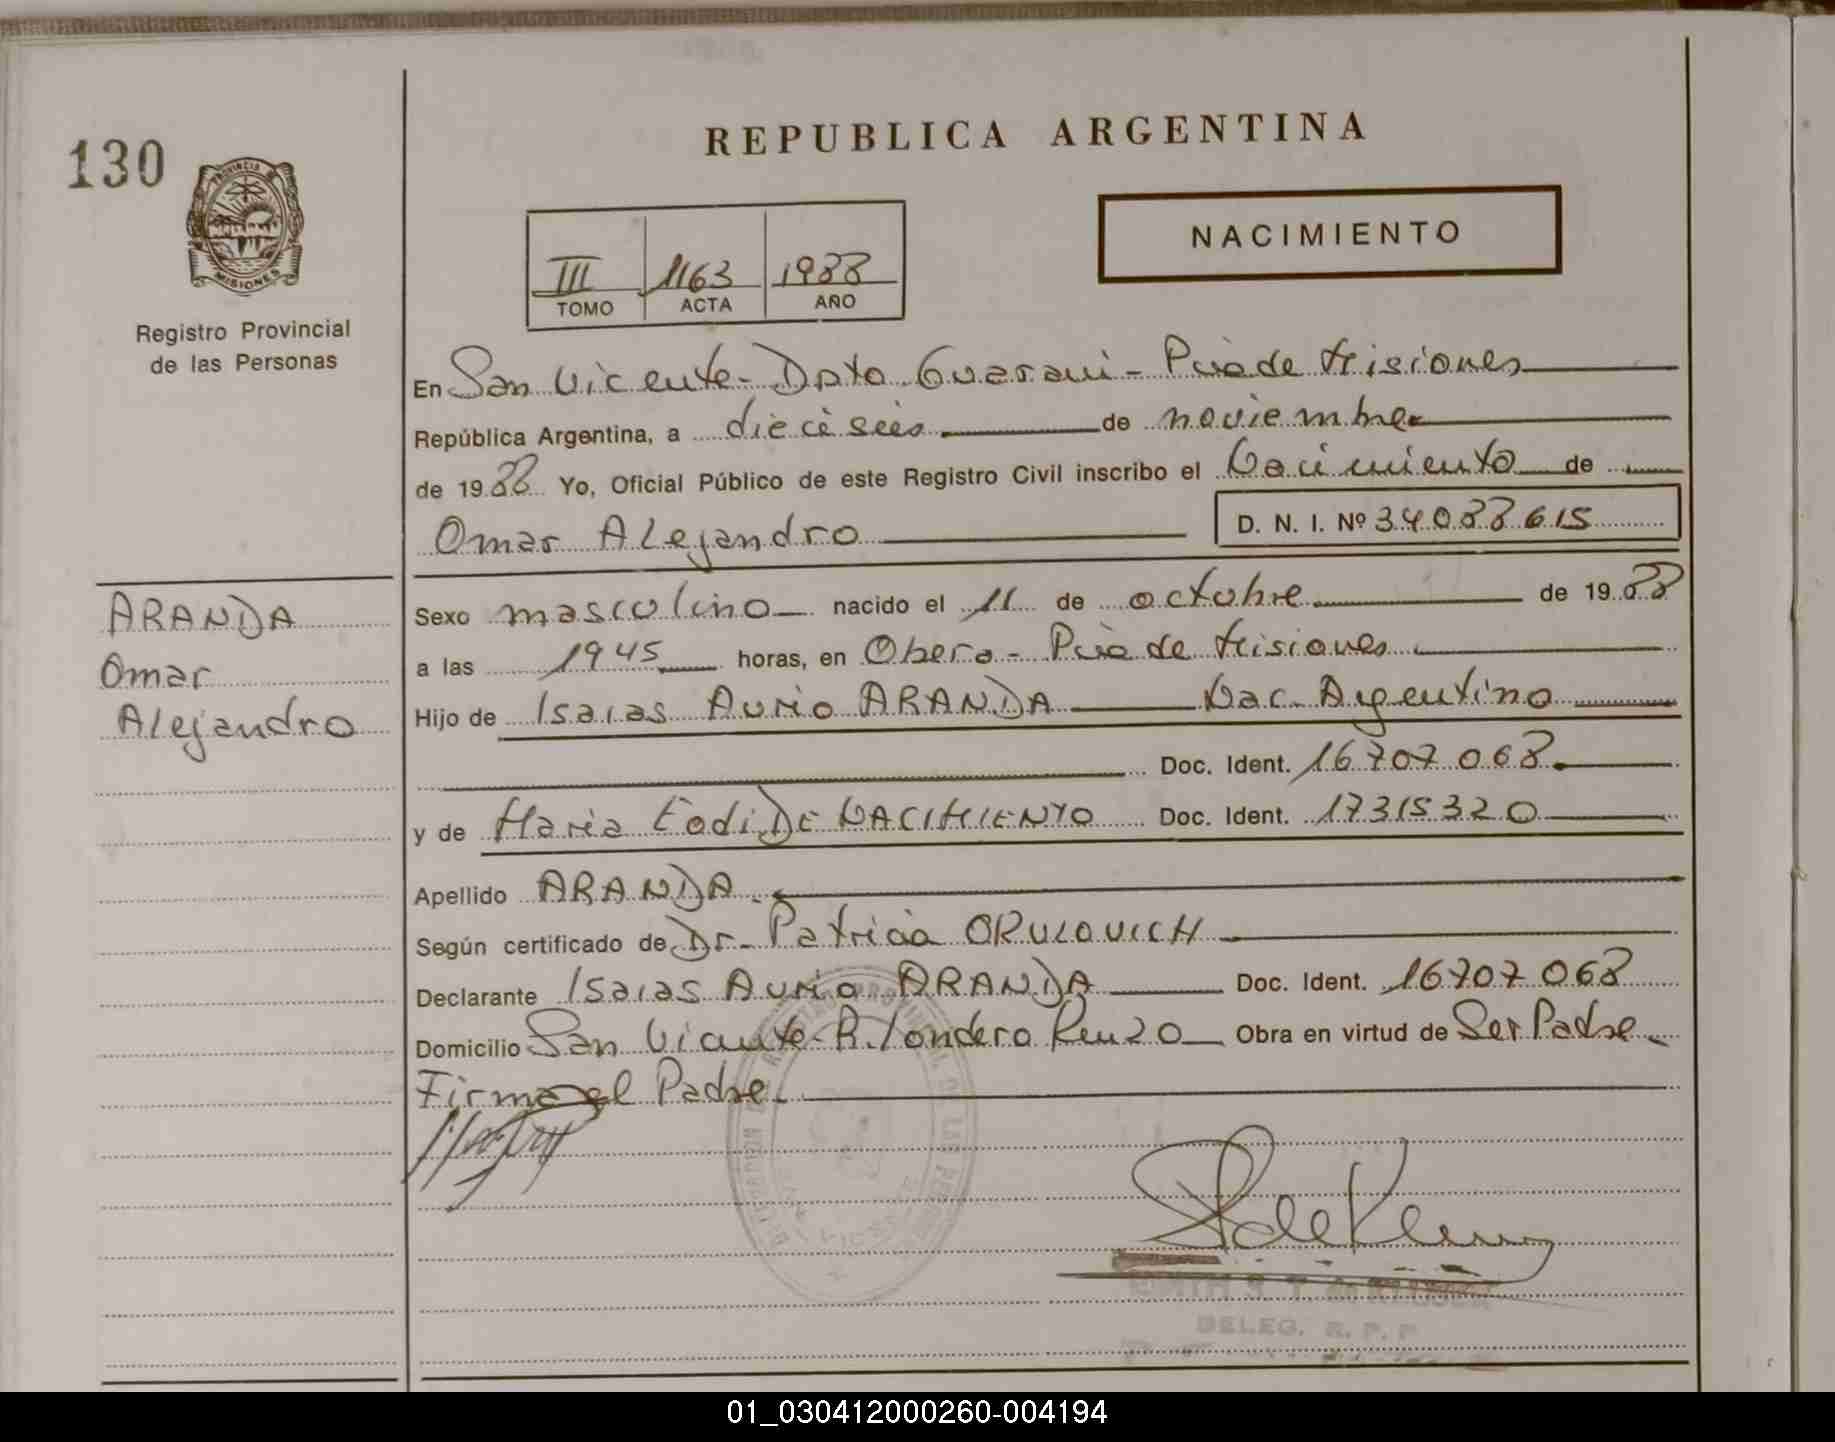 130
PROVINCIA DE
MISIONES
Registro Provincial
de las Personas
REPUBLICA ARGENTINA
III 1163 1988
TOMO ACTA AÑO
NACIMIENTO
En San Vicente - Dpto Guarani - Pcia de Misiones
República Argentina, a dieciseis de noviembre
de 1988 Yo, Oficial Público de este Registro Civil inscribo el Nacimiento de
Omar Alejandro D. N. I. Nº 34088615
ARANDA
Omar
Alejandro
Sexo masculino nacido el 11 de octubre de 1988
a las 1945 horas, en Obera - Pcia de Misiones
Hijo de Isaias Aurio ARANDA Nac. Argentino
Doc. Ident. 16707068
y de Maria Eodi DE NACIMIENTO Doc. Ident. 17315320
Apellido ARANDA
Según certificado de Dr. Patricia ORULOVICH
Declarante Isaias Aurio ARANDA Doc. Ident. 16707068
Domicilio San Vicente - R. Londero Renzo Obra en virtud de Ser Padre
Firma el Padre
DELEG. R. P. P
01_030412000260-004194